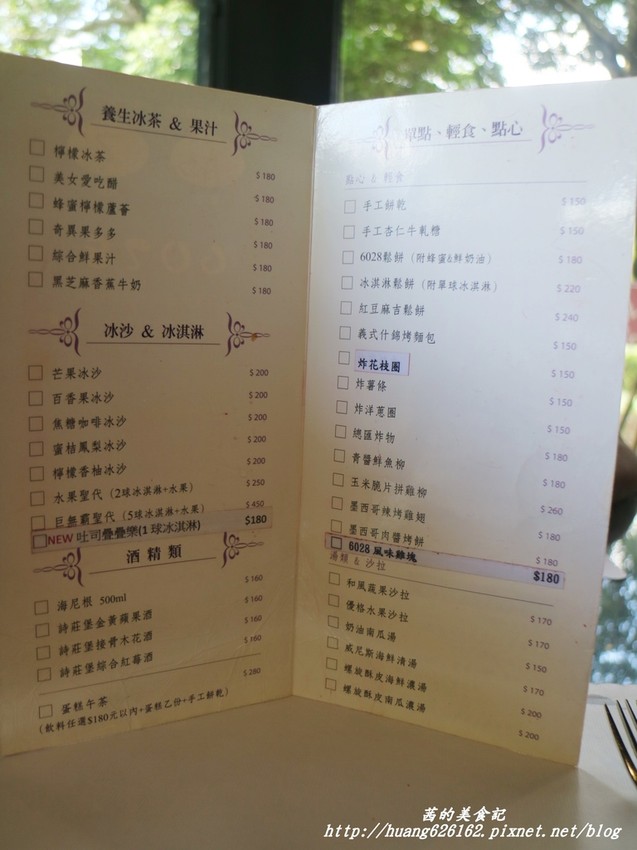 養生冰茶 & 果汁
檸檬冰茶 $180
美女愛吃醋 $180
蜂蜜檸檬蘆薈 $180
奇異果多多 $180
綜合鮮果汁 $180
黑芝麻香蕉牛奶 $180
冰沙 & 冰淇淋
芒果冰沙 $200
百香果冰沙 $200
焦糖咖啡冰沙 $200
蜜桔鳳梨冰沙 $200
檸檬香柚冰沙 $200
水果聖代 (2球冰淇淋+水果) $250
巨無霸聖代 (5球冰淇淋+水果) $450
NEW 吐司疊疊樂(1球冰淇淋) $180
酒精類
海尼根 500ml $160
詩莊堡金黃蘋果酒 $160
詩莊堡接骨木花酒 $160
詩莊堡綜合紅莓酒 $160
蛋糕午茶 $280
(飲料任選$180元以內+蛋糕乙份+手工餅乾)
單點、輕食、點心
點心 & 輕食
手工餅乾 $150
手工杏仁牛軋糖 $150
6028鬆餅 (附蜂蜜&鮮奶油) $180
冰淇淋鬆餅 (附單球冰淇淋) $220
紅豆麻吉鬆餅 $240
義式什錦烤麵包 $150
炸花枝圈 $150
炸薯條 $150
炸洋蔥圈 $150
總匯炸物 $180
青醬鮮魚柳 $180
玉米脆片拼雞柳 $260
墨西哥辣烤雞翅 $180
墨西哥肉醬烤餅 $180
6028 風味雞塊 $180
湯類 & 沙拉
和風蔬果沙拉 $170
優格水果沙拉 $170
奶油南瓜湯 $150
威尼斯海鮮清湯 $170
螺旋酥皮海鮮濃湯 $200
螺旋酥皮南瓜濃湯 $200
茜的美食記
http://huang626162.pixnet.net/blog